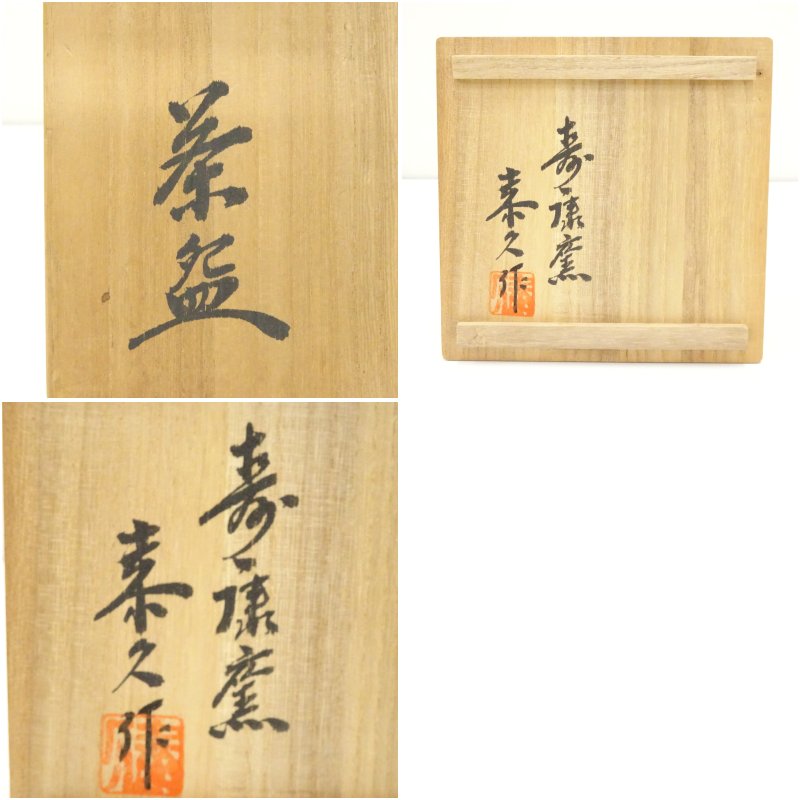 茶盌
寿康窯
泰久作
寿康窯
泰久作